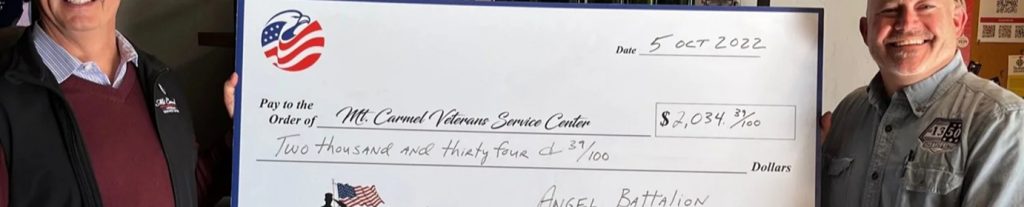 Date 5 OCT 2022
Pay to the
Order of Mt. Carmel Veterans Service Center
$ 2,034. 39/100
Two thousand and thirty four & 39/100
Dollars
ANGEL BATTALION
1350